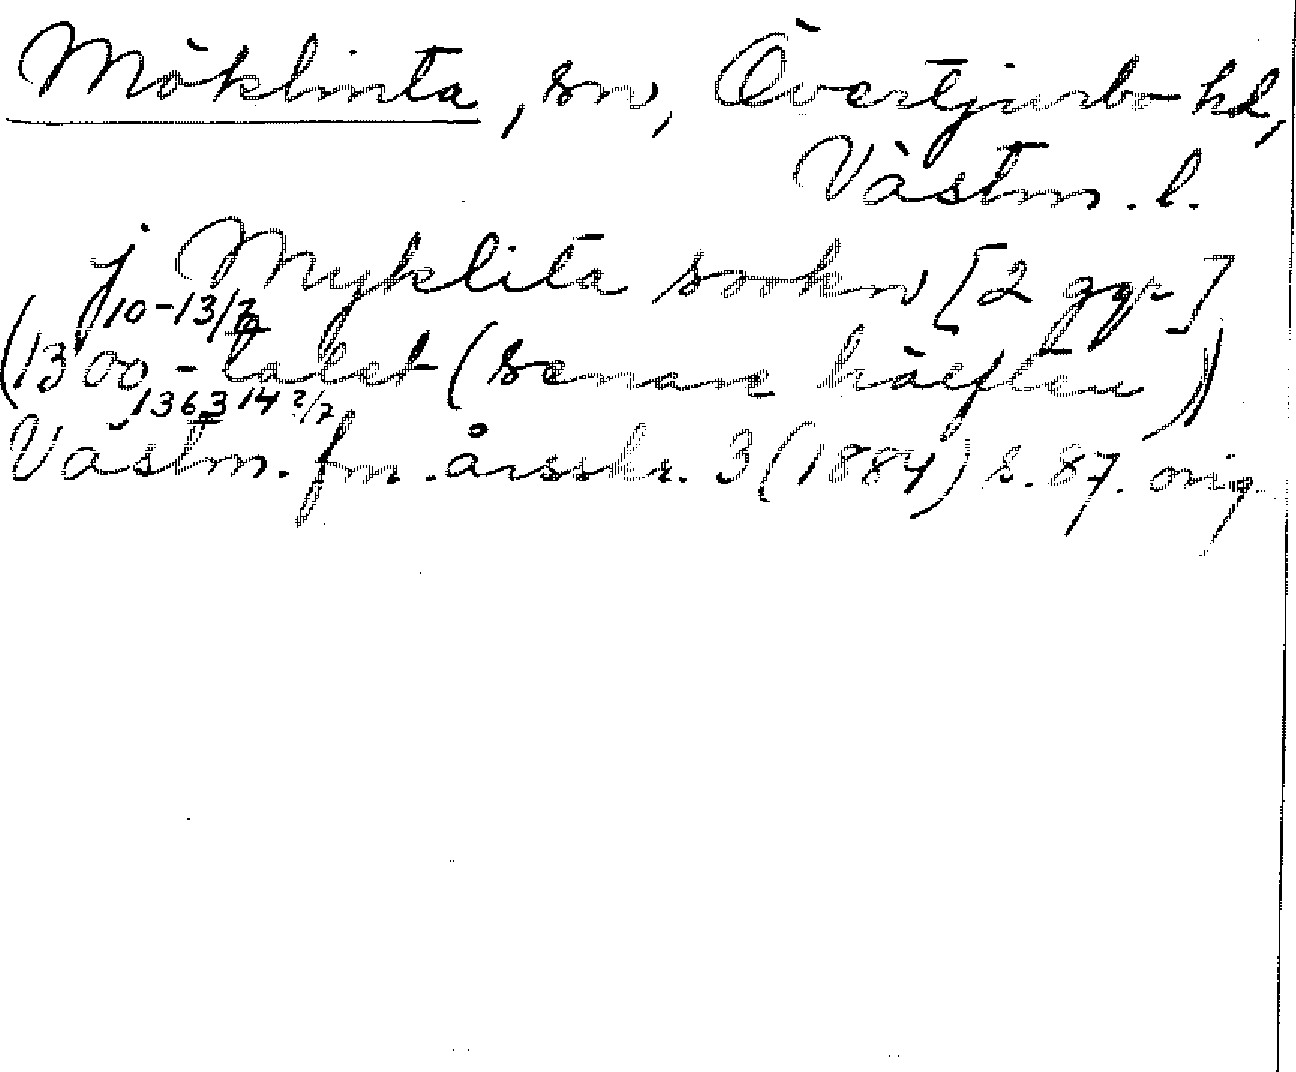 Möklinta, sn, Övertjurbo hd,
Västm. l.
j Myklita sookn [2 ggr]
10-13/2
(1300-talet (senare hälften))
1363 14 2/7
Västm. fm. årsskr. 3 (1884) s. 87. orig.